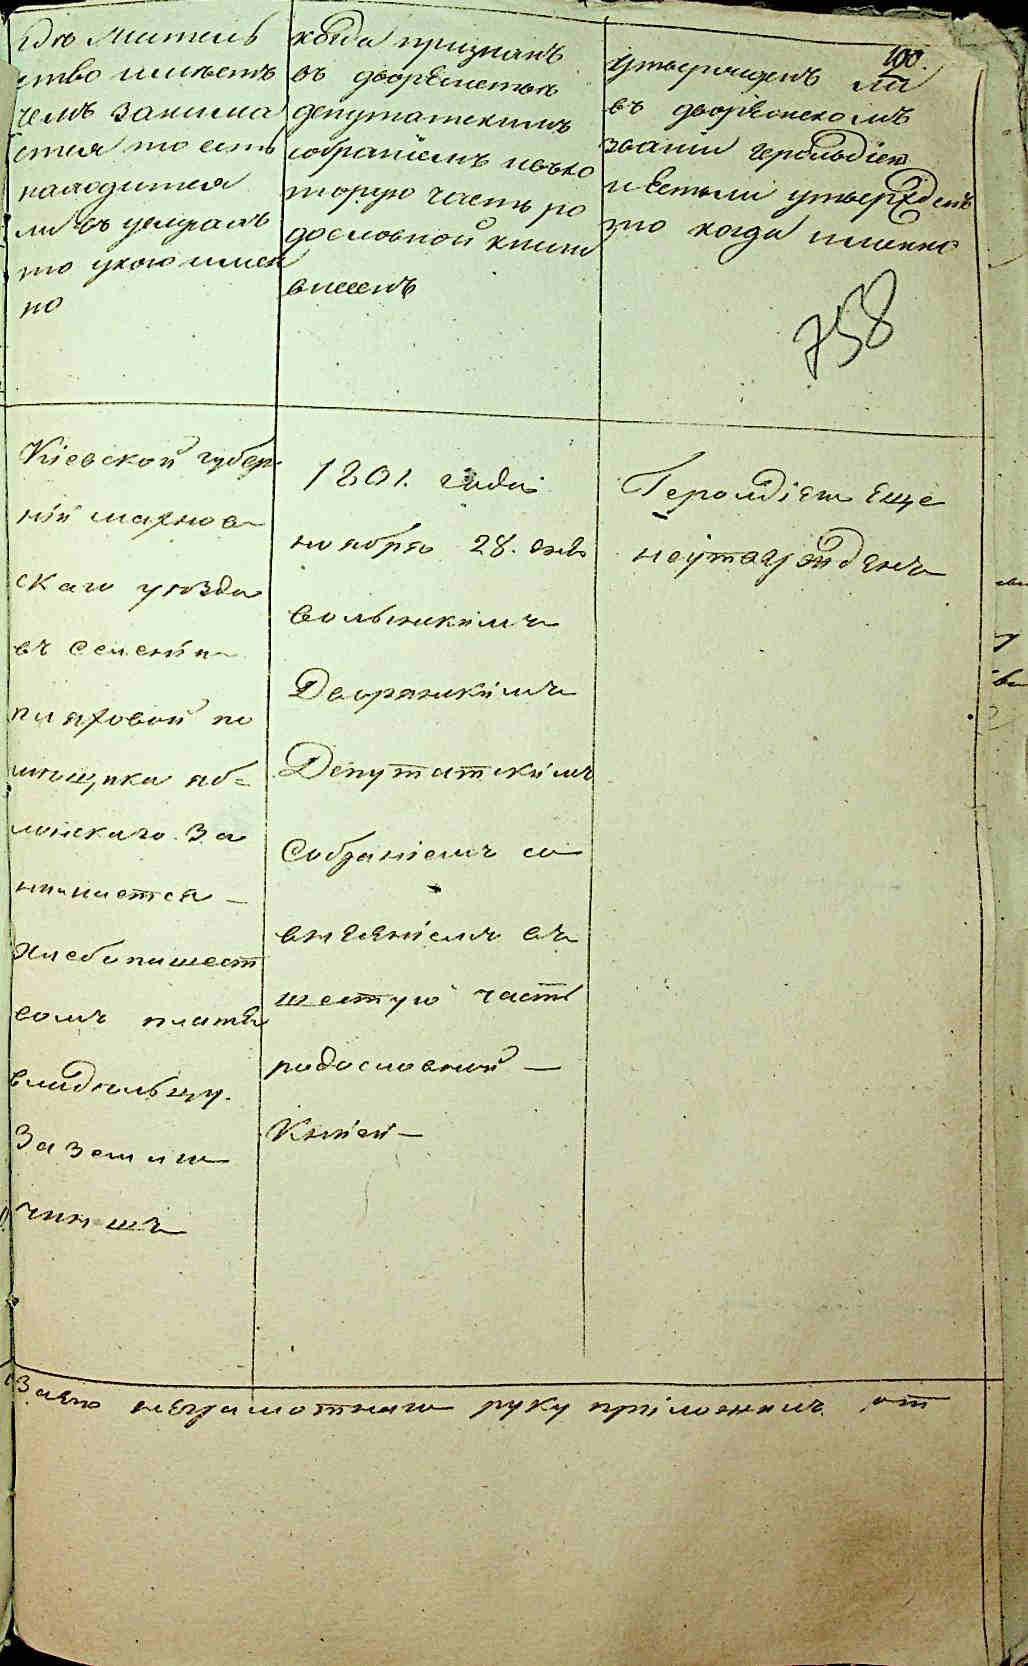 100.
гдѣ житель
ство имѣетъ
чемъ занима
ется то есть
находится
ли въ услугахъ
то укого имен
но
когда признанъ
въ дворянствѣ
депутатскимъ
собраніемъ ивъко
торую часть ро
дословной книги
внесенъ
утвержденъ ли
въ дворянскомъ
званіи герольдіею
и естьли утвержденъ
то когда именно
758
Кіевской губер
ніи махнов
скаго уѣзда
въ селеніи
пляховой по
мещика яб=
лонскаго за
нимается
хлебопашест
вомъ платя
владельцу
За земли
чиншъ
1801. года
ноября 28. дня
волынскимъ
Дворянскимъ
Депутатскимъ
Собраніемъ со
внесеніемъ въ
шестую часть
родословной
Книги
Герольдіею еще
неутвержденъ
За его неграмотнаго руку приложилъ от